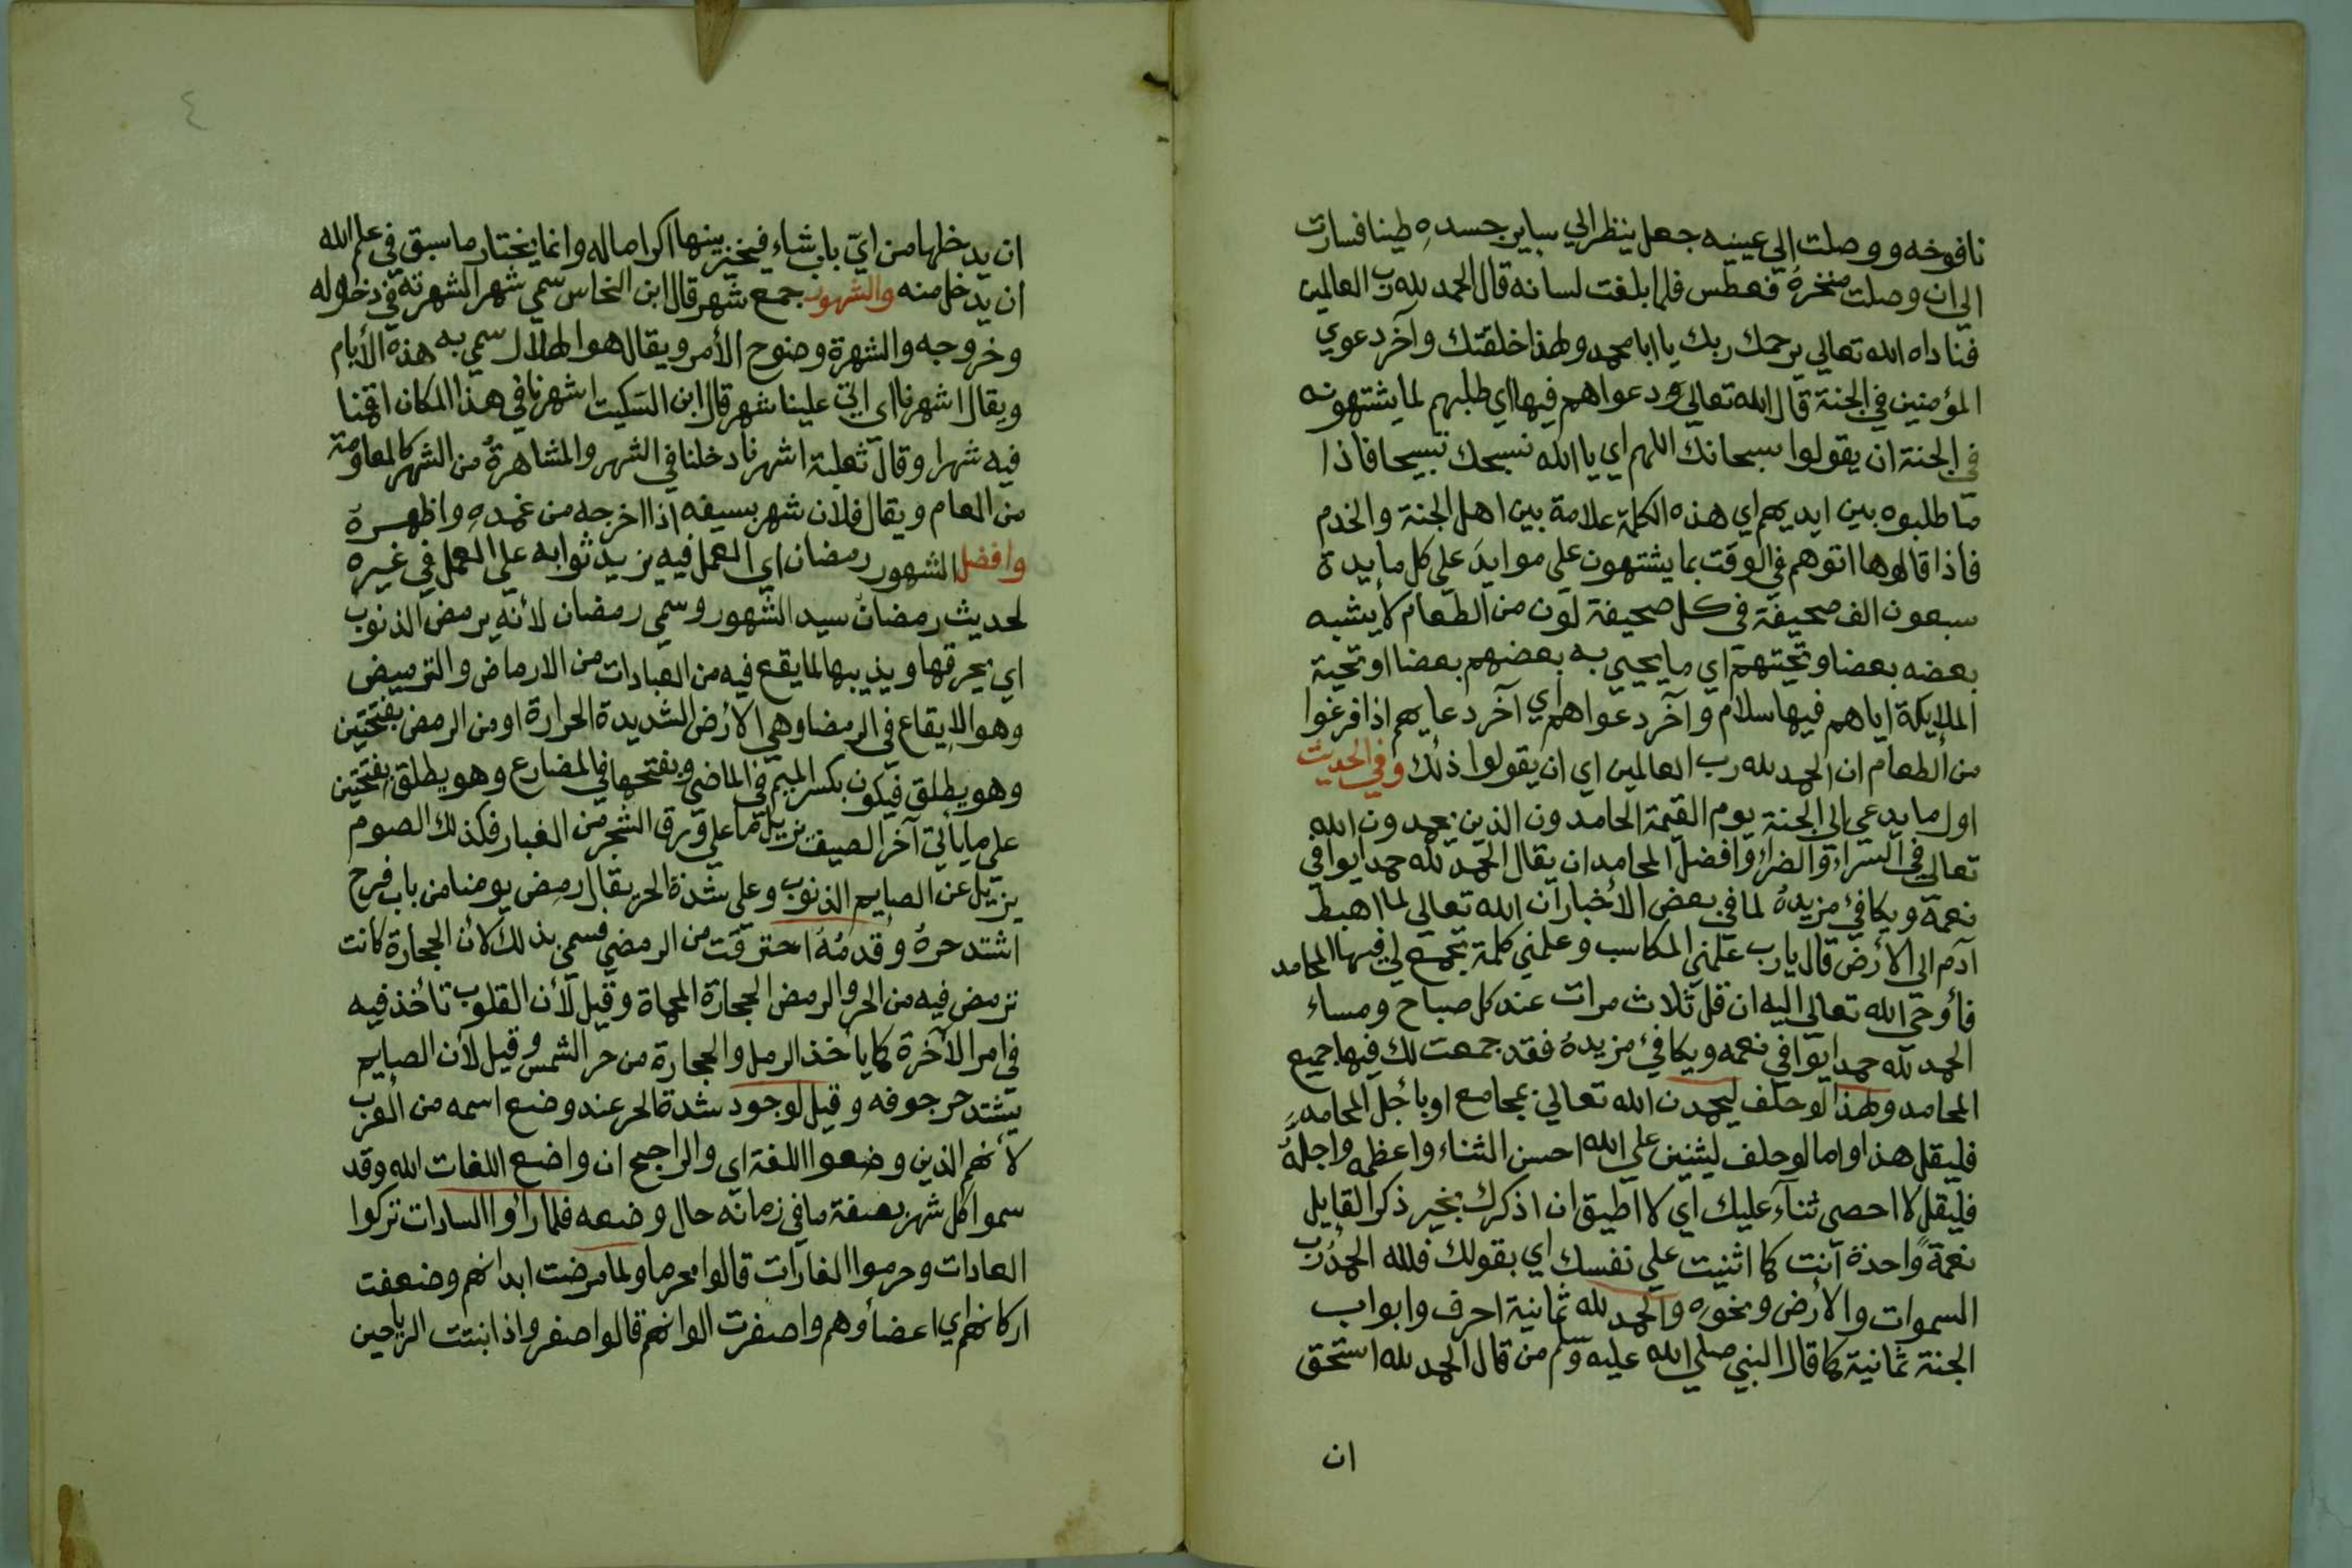 نافوخه ووصلت الي عينيه جعل ينظر الي ساير جسده طينا فسارت
الي ان وصلت منخره فعطس فلما بلغت لسانه قال الحمد لله رب العالمين
فناداه الله تعالي يرحمك ربك يا ابا محمد ولهذا خلقتك وآخر دعوي
المؤمنين في الجنة قال الله تعالي ودعواهم فيها اي طلبهم لما يشتهونه
في الجنة ان يقولوا سبحانك اللهم اي يا الله نسبحك تسبيحا فاذا
ما طلبوه بين ايديهم اي هذه الكلمة علامة بين اهل الجنة والخدم
فاذا قالوها اتوهم في الوقت بما يشتهون علي موايد علي كل مايدة
سبعون الف صحيفة في كل صحيفة لون من الطعام لا يشبه
بعضه بعضا وتحيتهم اي ما يحيي به بعضهم بعضا او تحية
الملايكة اياهم فيها سلام وآخر دعواهم اي آخر دعايهم اذا فرغوا
من الطعام ان الحمد لله رب العالمين اي ان يقولوا ذلك وفي الحديث
اول ما يدعي الي الجنة يوم القيمة الحامدون الذين يحمدون الله
تعالي في السراء والضراء وافضل المحامد ان يقال الحمد لله حمدا يوافي
نعمه ويكافئ مزيده لما في بعض الأخبار ان الله تعالي لما اهبط
آدم الي الأرض قال يا رب علمني المكاسب وعلمني كلمة تجمع لي فيها المحامد
فأوحي الله تعالي اليه ان قل ثلاث مرات عند كل صباح ومساء
الحمد لله حمدا يوافي نعمه ويكافئ مزيده فقد جمعت لك فيها جميع
المحامد ولهذا لو حلف ليحمدن الله تعالي بمجامع او بأجل المحامد
فليقل هذا واما لو حلف ليثنين علي الله احسن الثناء واعظمه واجله
فليقل لا احصي ثناء عليك اي لا اطيق ان اذكرك بخير ذكر القايل
نعمة واحدة انت كما اثنيت علي نفسك اي بقولك فلله الحمد رب
السموات والأرض ونحوه والحمد لله ثمانية احرف وابواب
الجنة ثمانية كما قال النبي صلي الله عليه وسلم من قال الحمد لله استحق
ان
٤
ان يدخلها من اي باب شاء فيخير بينها اكراما له وانما يختار ما سبق في علم الله
ان يدخل منه والشهور جمع شهر قال ابن النحاس سمي شهرا لشهرته في دخوله
وخروجه والشهرة وضوح الأمر ويقال هو الهلال سمي به هذه الأيام
ويقال اشهرنا اي اتي علينا شهر قال ابن السكيت اشهرنا في هذا المكان اقمنا
فيه شهرا وقال ثعلبة اشهرنا دخلنا في الشهر والمشاهرة من الشهر كالمعاومة
من العام ويقال فلان شهر بسيفه اذا اخرجه من غمده واظهره
وافضل الشهور رمضان اي العمل فيه يزيد ثوابه علي العمل في غيره
لحديث رمضان سيد الشهور وسمي رمضان لأنه يرمض الذنوب
اي يحرقها ويذيبها لما يقع فيه من العبادات من الارماض والترميض
وهو الايقاع في الرمضا وهي الأرض الشديدة الحرارة او من الرمض بفتحتين
وهو يطلق فيكون بكسر الميم في الماضي وبفتحها في المضارع وهو يطلق بفتحتين
علي ما يأتي آخر الصيف يزيل ما علي ورق الشجر من الغبار فكذلك الصوم
يزيل عن الصايم الذنوب وعلي شدة الحر يقال رمض يومنا من باب فرح
اشتد حره وقدمه احترقت من الرمضي فسمي بذلك لأن الحجارة كانت
ترمض فيه من الحر والرمض الحجارة المحماة وقيل لأن القلوب تأخذ فيه
في امر الآخرة كما يأخذ الرمل والحجارة من حر الشمس وقيل لأن الصايم
يشتد حر جوفه وقيل لوجود شدة الحر عند وضع اسمه من العرب
لأنهم الذين وضعوا اللغة اي والراجح ان واضع اللغات الله وقد
سموا كل شهر بصفة ما في زمانه حال وضعه فلما رأوا السادات تركوا
العادات وحرموا الغارات قالوا محرما ولما مرضت ابدانهم وضعفت
اركانهم اي اعضاؤهم واصفرت الوانهم قالوا صفر واذا نبتت الرياحين